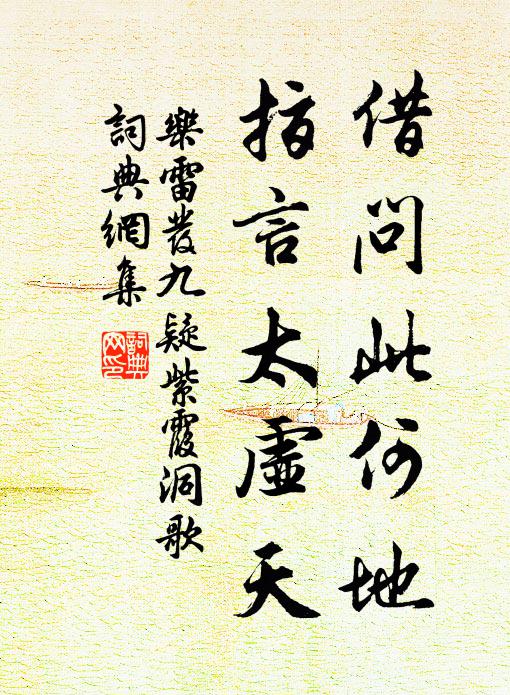 借问此何地
指言太虚天
樂雷發九疑紫霞洞歌
詞典網集
詞典网印